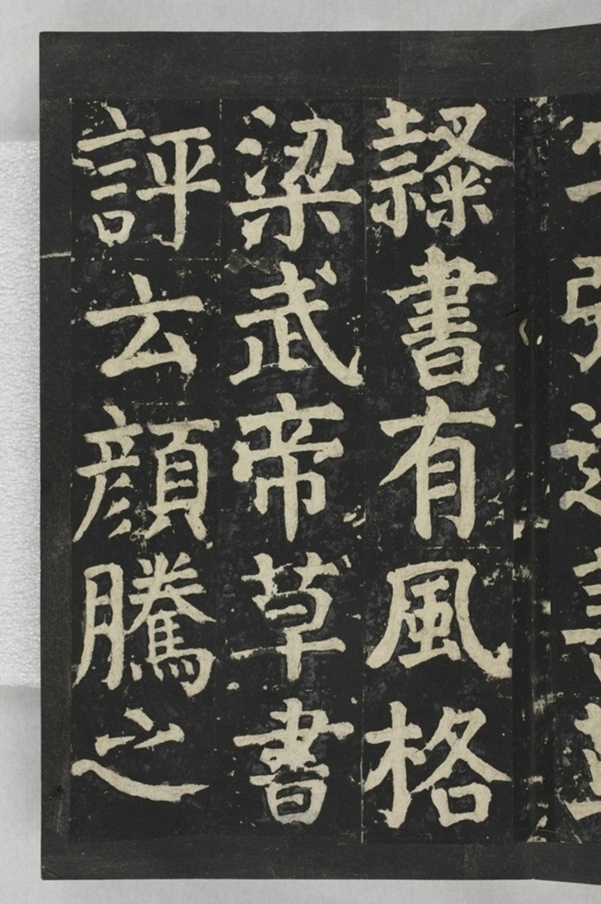 隷書有風格
梁武帝草書
評云顔騰之